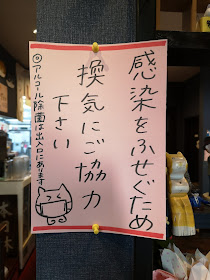 感染をふせぐため
換気にご協力
下さい
◎アルコール除菌は出入口にあります